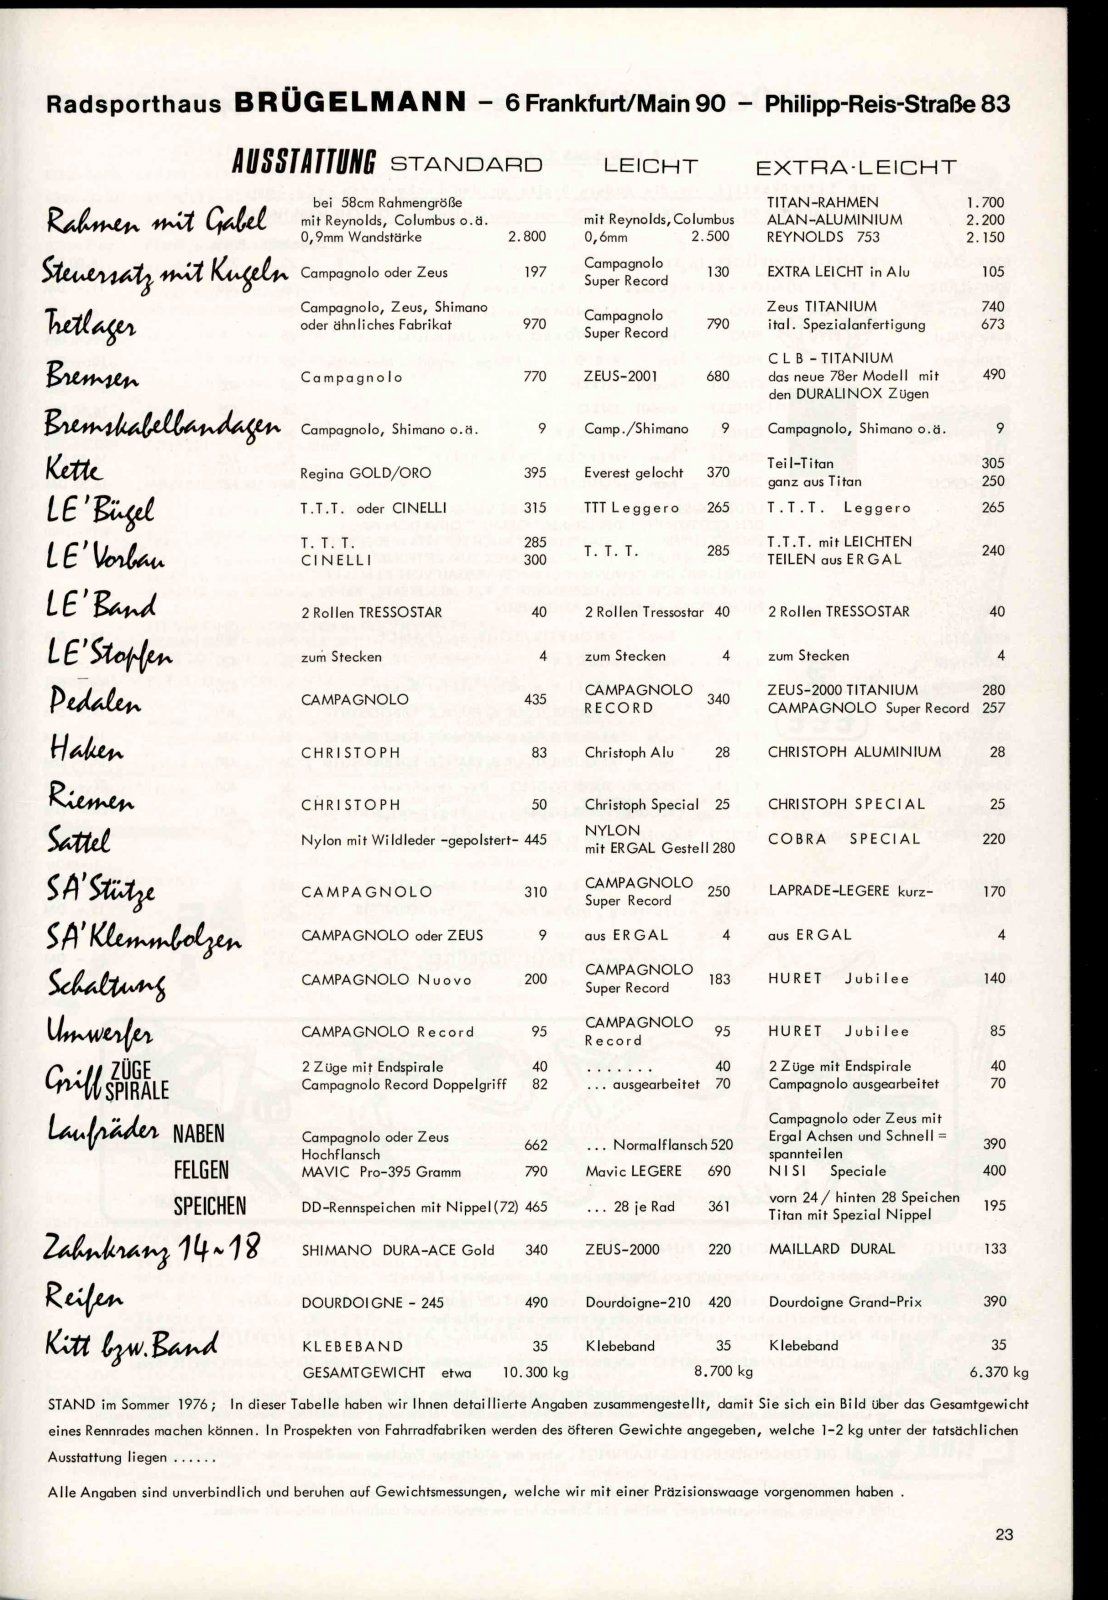 Radsporthaus BRÜGELMANN – 6 Frankfurt/Main 90 – Philipp-Reis-Straße 83
AUSSTATTUNG STANDARD LEICHT EXTRA-LEICHT
bei 58cm Rahmengröße TITAN-RAHMEN 1.700
Rahmen mit Gabel mit Reynolds, Columbus o.ä. mit Reynolds, Columbus ALAN-ALUMINIUM 2.200
0,9mm Wandstärke 2.800 0,6mm 2.500 REYNOLDS 753 2.150
Steuersatz mit Kugeln Campagnolo oder Zeus 197 Campagnolo 130 EXTRA LEICHT in Alu 105
Super Record
Tretlager Campagnolo, Zeus, Shimano Campagnolo Zeus TITANIUM 740
oder ähnliches Fabrikat 970 Super Record 790 ital. Spezialanfertigung 673
C L B - TITANIUM
Bremsen Campagnolo 770 ZEUS-2001 680 das neue 78er Modell mit 490
den DURALINOX Zügen
Bremskabelbandagen Campagnolo, Shimano o.ä. 9 Camp./Shimano 9 Campagnolo, Shimano o.ä. 9
Kette Regina GOLD/ORO 395 Everest gelocht 370 Teil-Titan 305
ganz aus Titan 250
LE'Bügel T.T.T. oder CINELLI 315 TTT Leggero 265 T.T.T. Leggero 265
LE'Vorbau T. T. T. 285 T. T. T. 285 T.T.T. mit LEICHTEN 240
CINELLI 300 TEILEN aus ERGAL
LE'Band 2 Rollen TRESSOSTAR 40 2 Rollen Tressostar 40 2 Rollen TRESSOSTAR 40
LE'Stopfen zum Stecken 4 zum Stecken 4 zum Stecken 4
Pedalen CAMPAGNOLO 435 CAMPAGNOLO 340 ZEUS-2000 TITANIUM 280
RECORD CAMPAGNOLO Super Record 257
Haken CHRISTOPH 83 Christoph Alu 28 CHRISTOPH ALUMINIUM 28
Riemen CHRISTOPH 50 Christoph Special 25 CHRISTOPH SPECIAL 25
Sattel Nylon mit Wildleder -gepolstert- 445 NYLON COBRA SPECIAL 220
mit ERGAL Gestell 280
SA'Stütze CAMPAGNOLO 310 CAMPAGNOLO 250 LAPRADE-LEGERE kurz- 170
Super Record
SA'Klemmbolzen CAMPAGNOLO oder ZEUS 9 aus ERGAL 4 aus ERGAL 4
Schaltung CAMPAGNOLO Nuovo 200 CAMPAGNOLO 183 HURET Jubilee 140
Super Record
Umwerfer CAMPAGNOLO Record 95 CAMPAGNOLO 95 HURET Jubilee 85
Record
Griff ZÜGE 2 Züge mit Endspirale 40 ....... 40 2 Züge mit Endspirale 40
SPIRALE Campagnolo Record Doppelgriff 82 ... ausgearbeitet 70 Campagnolo ausgearbeitet 70
Laufräder NABEN Campagnolo oder Zeus 662 ... Normalflansch 520 Campagnolo oder Zeus mit
Hochflansch Ergal Achsen und Schnell= 390
spannteilen
FELGEN MAVIC Pro-395 Gramm 790 Mavic LEGERE 690 NISI Speciale 400
SPEICHEN DD-Rennspeichen mit Nippel(72) 465 ... 28 je Rad 361 vorn 24/ hinten 28 Speichen 195
Titan mit Spezial Nippel
Zahnkranz 14~18 SHIMANO DURA-ACE Gold 340 ZEUS-2000 220 MAILLARD DURAL 133
Reifen DOURDOIGNE - 245 490 Dourdoigne-210 420 Dourdoigne Grand-Prix 390
Kitt bzw. Band KLEBEBAND 35 Klebeband 35 Klebeband 35
GESAMTGEWICHT etwa 10.300 kg 8.700 kg 6.370 kg
STAND im Sommer 1976; In dieser Tabelle haben wir Ihnen detaillierte Angaben zusammengestellt, damit Sie sich ein Bild über das Gesamtgewicht
eines Rennrades machen können. In Prospekten von Fahrradfabriken werden des öfteren Gewichte angegeben, welche 1-2 kg unter der tatsächlichen
Ausstattung liegen ......
Alle Angaben sind unverbindlich und beruhen auf Gewichtsmessungen, welche wir mit einer Präzisionswaage vorgenommen haben .
23